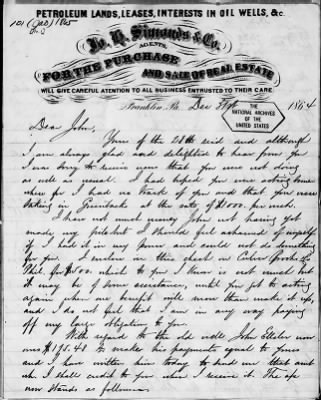 PETROLEUM LANDS, LEASES, INTERESTS IN OIL WELLS, &c.
101 (Jao) 1865
Jos. H. Simonds & Co.
AGENTS,
FOR THE PURCHASE AND SALE OF REAL ESTATE
WILL GIVE CAREFUL ATENTION TO ALL BUSINESS ENTRUSTED TO THEIR CARE
Franklin, Pa. Dec 1864
THE NATIONAL ARCHIVES OF THE UNITED STATES
Dear John,
Yours of the 28th recd and although
I am always glad and delighted to hear from you
I was sorry to receive news that you were not doing
as well as usual. I had hoped you were acting some
where for I had no track of you and that you were
raking in Greenbacks at the rate of $1000. per week.
I have not much money John not having yet
made my pile but I should feel ashamed of myself
if I had it in my power and could not do something
for you. I enclose in this check on
Phil. for $500. which to you I know is not much but
it may be of some assistance, until you get to acting
again when one benefit will more than make it up,
and I do not feel that I am in any way paying
off my large obligation to you.
With regard to the old well John Ellsler now
owes $195.48 to make his payments equal to yours
and I have written him today to send me that amt
wh I shall credit to you when I receive it. The a/c
now stands as follows